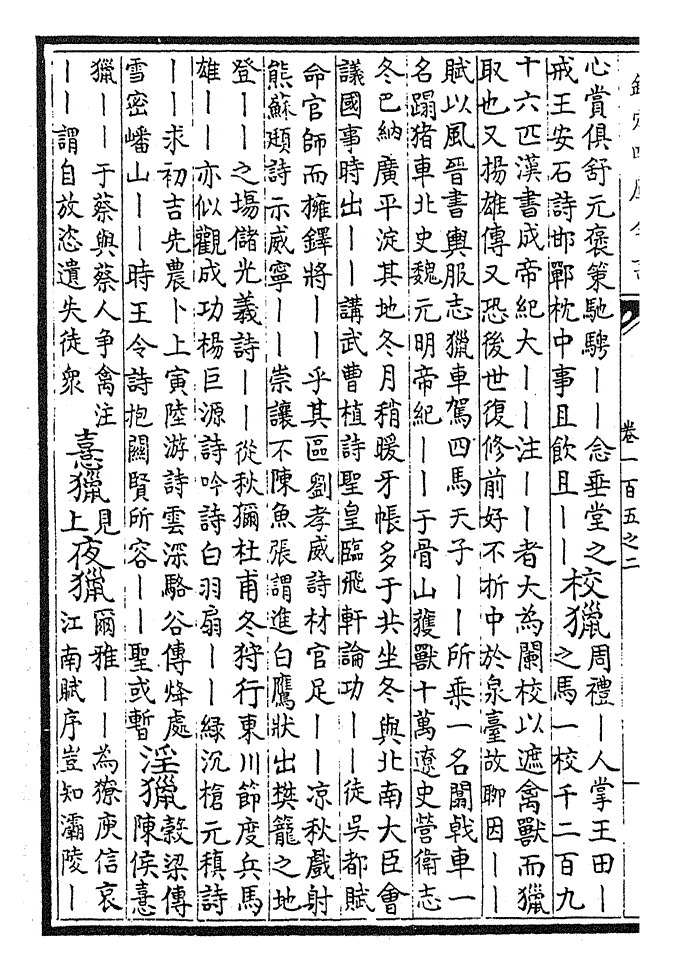 欽定四庫全書
卷一百五之二
心賞俱舒元褒策馳騁——念垂堂之
戒王安石詩邯鄲枕中事且飲且——
校獵
周禮—人掌王田—
之馬一校千二百九
十六匹漢書成帝紀大——注——者大為闌校以遮禽獸而獵
取也又揚雄傳又恐後世復修前好不折中於泉臺故聊因——
賦以風晉書輿服志獵車駕四馬天子——所乘一名闟戟車一
名蹋猪車北史魏元明帝紀——于骨山獲獸十萬遼史營衛志
冬巴納廣平淀其地冬月稍暖牙帳多于共坐冬與北南大臣會
議國事時出——講武曹植詩聖皇臨飛軒論功——徒吳都賦
命官師而擁鐸將——乎其區劉孝威詩材官足——凉秋戲射
熊蘇頲詩示威寧——崇讓不陳魚張謂進白鷹狀出樊籠之地
登——之場儲光羲詩——從秋獮杜甫冬狩行東川節度兵馬
雄——亦似觀成功楊巨源詩吟詩白羽扇——綠沉槍元稹詩
——求初吉先農卜上寅陸游詩雲深駱谷傳烽處
雪密嶓山——時王令詩抱關賢所容——聖或暫
淫獵
穀梁傳
陳侯憙
獵——于蔡與蔡人争禽注
——謂自放恣遺失徒衆
憙獵
見
上
夜獵
爾雅——為獠庾信哀
江南賦序豈知灞陵—